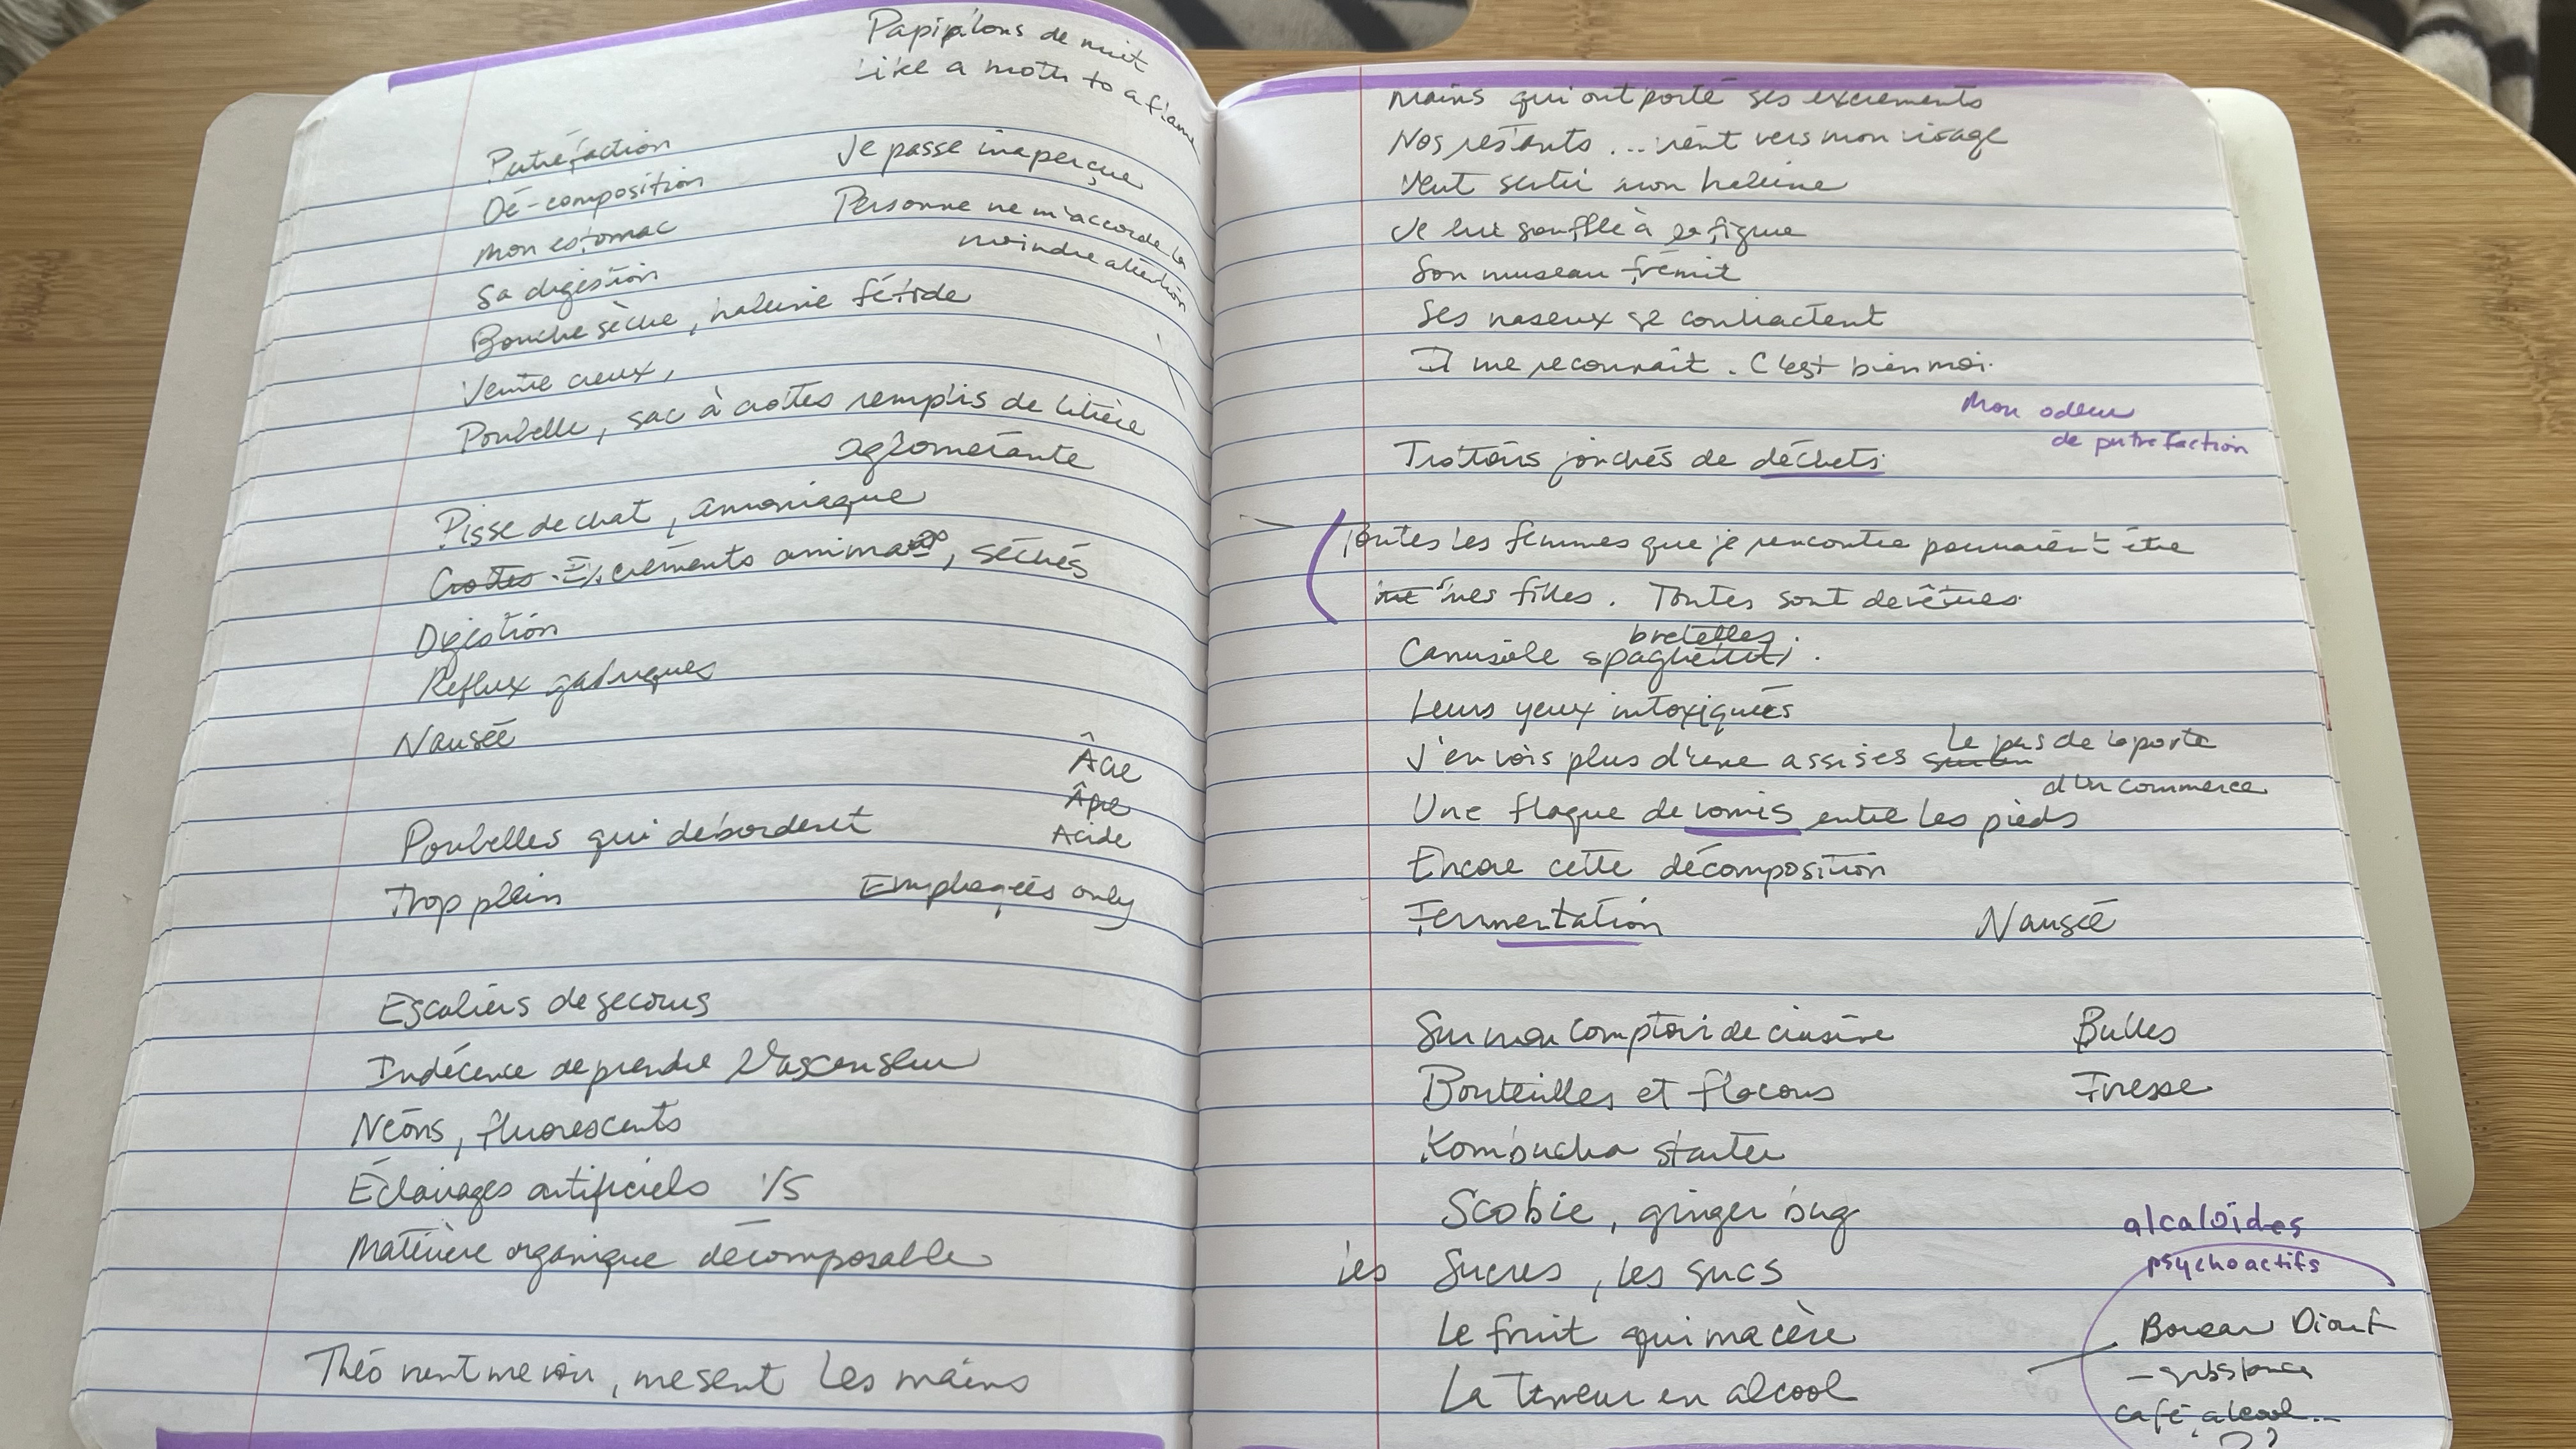 Papipilons de nuit
Like a moth to a flame
Je passe inaperçue
Personne ne m'accorde la
moindre attention
Putréfaction
Dé-composition
Mon estomac
Sa digestion
Bouche sèche, haleine fétide
Ventre creux,
Poubelle, sac à crottes remplis de litière
aglomérante
Pisse de chat, amoniaque
Crottes. Excréments animaux, séchés
Digestion
Reflux gastriques
Nausée
Âcre
Âpre
Acide
Poubelles qui débordent
Trop plein
Employées only
Escaliers de secours
Indécence de prendre l'ascenseur
Néons, fluorescents
Éclairages artificiels VS
Matière organique décomposable
Théo vient me voir, me sent les mains
Mains qui ont porté ses excréments
Nos restants ... vient vers mon visage
Veut sentir mon haleine
Je lui souffle à la figure
Son museau frémit
Ses naseux se contractent
Il me reconnaît. C'est bien moi.
Mon odeur
de putrefaction
Trottoirs jonchés de déchets
Toutes les femmes que je rencontre pourraient être
mes filles. Toutes sont dévêtues
bretelles
Camisole spaghetti.
Leurs yeux intoxiqués
J'en vois plus d'une assises sur le pas de la porte
d'un commerce
Une flaque de vomis entre les pieds
Encore cette décomposition
Fermentation
Nausée
Sur mon comptoir de cuisine
Bulles
Bouteilles et flacons
Ivresse
Kombucha starter
Scobie, ginger bug
les Sucres, les sucs
Le fruit qui macère
La teneur en alcool
alcaloïdes
psychoactifs
Boucar Diouf
- substance
café, alcool...
??